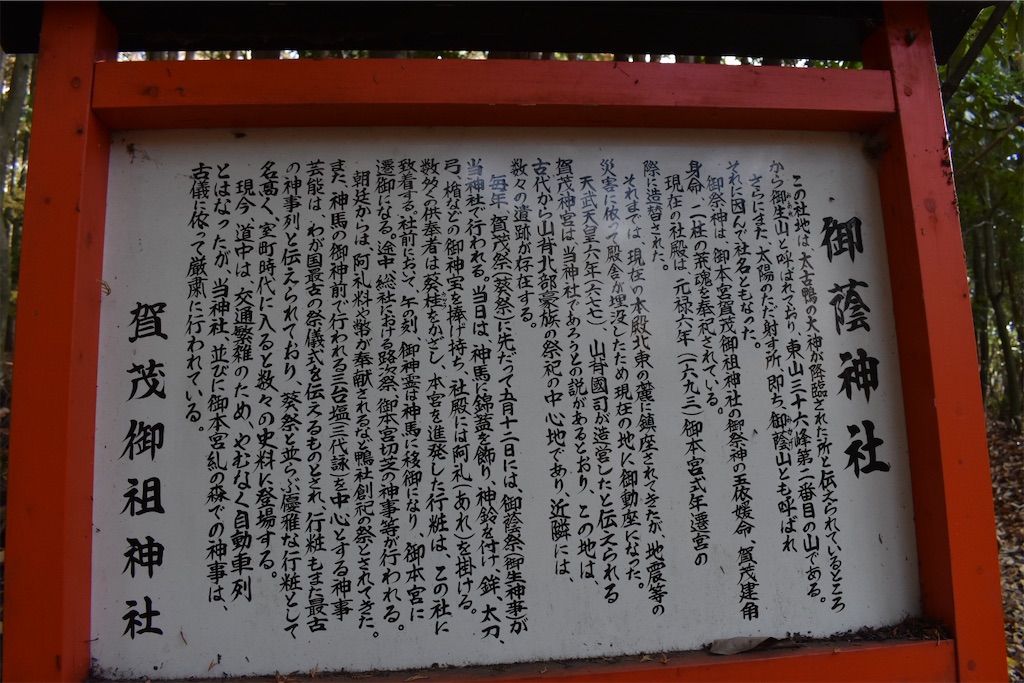 御蔭神社
この社地は、太古鴨の大神が降臨された所と伝えられているところ
から御生山と呼ばれており、東山三十六峰第二番目の山である。
さらにまた、太陽のただ射す所、即ち、御蔭山とも呼ばれ
それに因んで社名ともなった。
御祭神は、御本宮賀茂御祖神社の御祭神の玉依媛命、賀茂建角
身命、二柱の荒魂を奉祀されている。
現在の社殿は、元禄六年(一六九三)御本宮式年遷宮の
際に造替された。
それまでは、現在の本殿北東の麓に鎮座されてきたが、地震等の
災害に依って殿舎が埋没したため現在の地に御動座になった。
天武天皇六年(六七七)、山背國司が造営したと伝えられる
賀茂神宮は、当神社であろうとの説があるとおり、この地は、
古代から山背北部豪族の祭祀の中心地であり、近隣には、
数々の遺跡が存在する。
毎年、賀茂祭(葵祭)に先だって五月十二日には、御蔭祭(御生神事)が
当神社で行われる。当日は、神馬に錦蓋を飾り、神鈴を付け、鉾、太刀、
弓、楯などの御神宝を捧げ持ち、社殿には阿礼(あれ)を掛ける。
数多の供奉者は葵桂をかざし、本宮を進発した行粧は、この社に
致着する。社前において、午の刻、御神霊は神馬に移御になり、御本宮に
遷御になる。途中、総社における路次祭、御本宮切芝の神事等が行われる。
朝廷からは、阿礼料や幣が奉献されるなど鴨社創祀の祭とされてきた。
また、神馬の御神前で行われる三台塩三代詠を中心とする神事
芸能は、わが国最古の祭儀式を伝えるものとされ、行粧もまた最古
の神事列と伝えられており、葵祭と並らぶ優雅な行粧として
名高く、室町時代に入ると数々の史料に登場する。
現今、道中は、交通繁雑のため、やむなく自動車列
とはなったが、当神社、並びに御本宮糺の森での神事は、
古儀に依って厳粛に行われている。
賀茂御祖神社